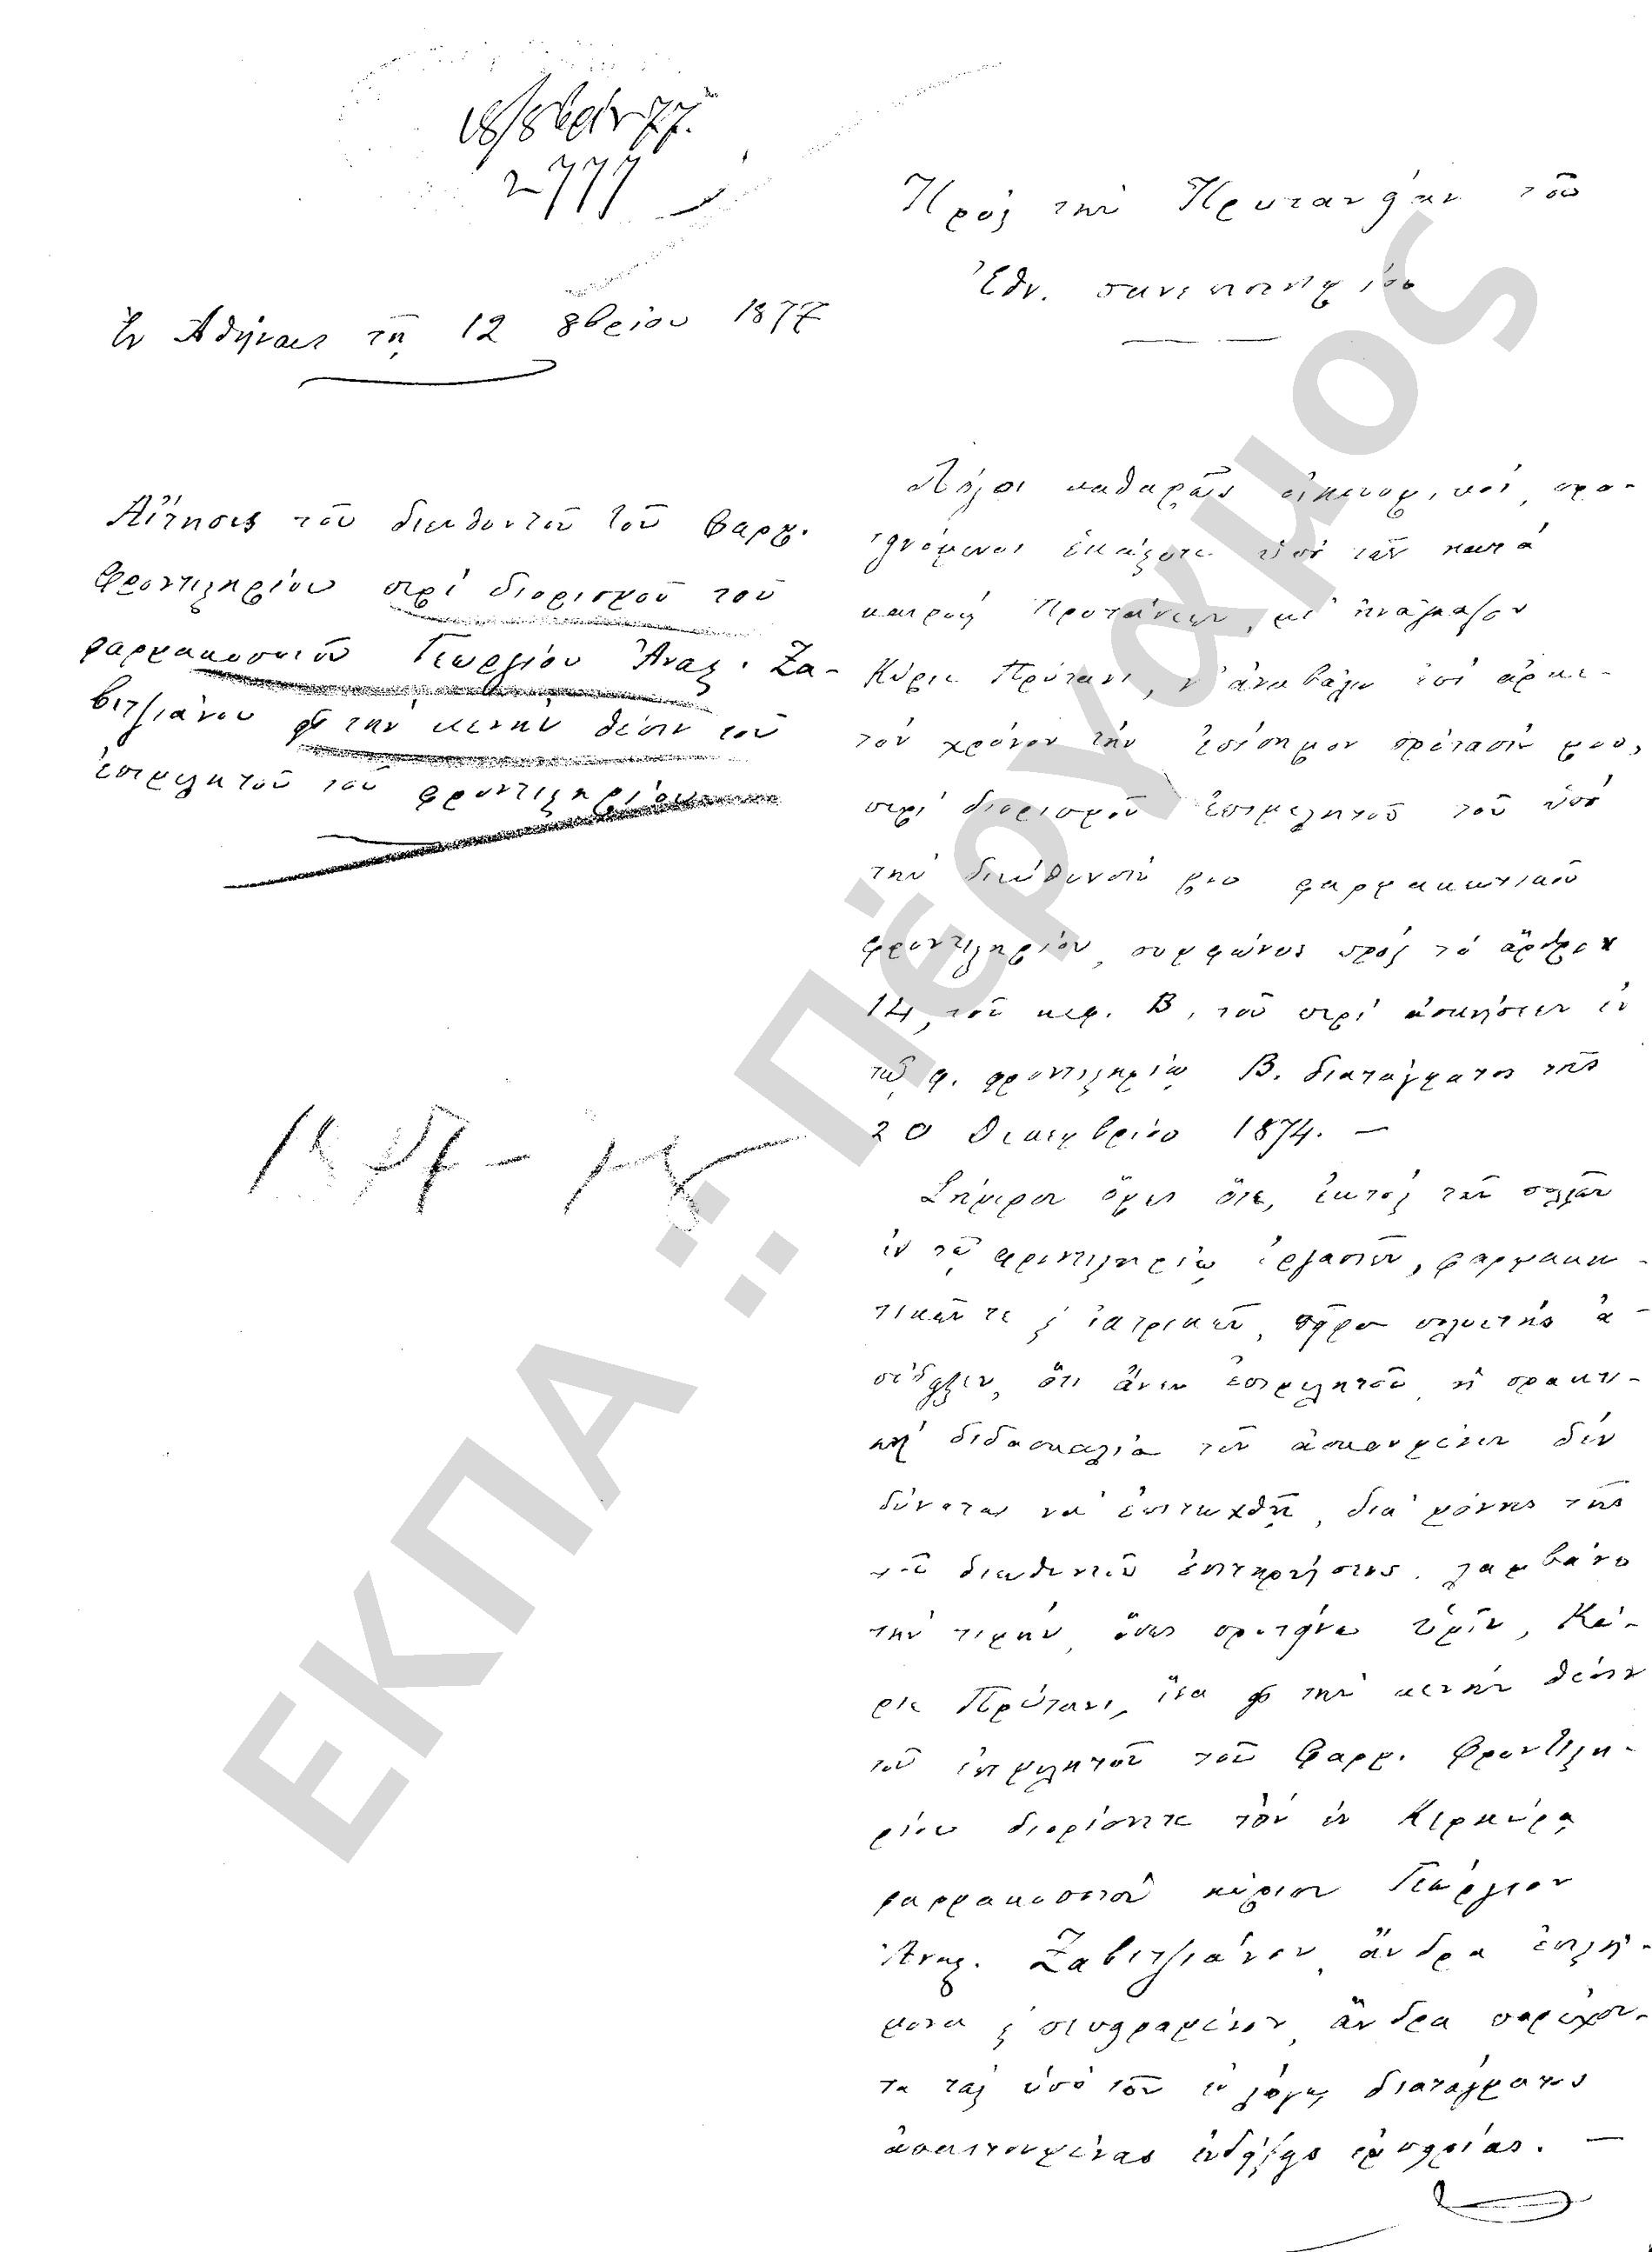 18/8βρίου 77.
2777
Ἐν Ἀθήναις τῇ 12 8βρίου 1877
Αἴτησις τοῦ διευθυντοῦ τοῦ Φαρμ.
Φροντιστηρίου περὶ διορισμοῦ τοῦ
φαρμακοποιοῦ Γεωργίου Ἀνας. Ζα-
βιτζιάνου εἰς τὴν κενὴν θέσιν τοῦ
ἐπιμελητοῦ τοῦ φροντιστηρίου
1877-78
Πρὸς τὴν Πρυτανείαν τοῦ
Ἐθν. πανεπιστημίου
Λόγοι καθαρῶς οἰκονομικοί, προ-
τεινόμενοι ἑκάστοτε ὑπὸ τῶν κατὰ
καιροὺς Πρυτάνεων, μὲ ἠνάγκασαν
Κύριε Πρύτανι, ν' ἀναβάλω ἐπὶ ἀρκε-
τὸν χρόνον τὴν ἐπίσημον πρότασίν μου,
περὶ διορισμοῦ ἐπιμελητοῦ τοῦ ὑπὸ
τὴν διεύθυνσίν μου φαρμακευτικοῦ
φροντιστηρίου, συμφώνως πρὸς τὸ ἄρθρον
14, τοῦ κεφ. Β, τοῦ περὶ ἀσκήσεων ἐν
τῷ φ. φροντιστηρίῳ Β. διατάγματος τῆς
20 Δεκεμβρίου 1874. —
Σήμερον ὅμως ὅτε, ἐκτὸς τῶν πολλῶν
ἐν τῷ φροντιστηρίῳ ἐργασιῶν, φαρμακευ-
τικῶν τε ϗ ἰατρικῶν, πεῖρα πολυετὴς ἀ-
πέδειξεν, ὅτι ἄνευ ἐπιμελητοῦ, ἡ πρακτι-
κὴ διδασκαλία τῶν ἀσκουμένων δὲν
δύναται νὰ ἐπιτευχθῇ, διὰ μόνης τῆς
τοῦ διευθυντοῦ ἐπιτηρήσεως, λαμβάνω
τὴν τιμήν, ὅπως προτείνω ὑμῖν, Κύ-
ριε Πρύτανι, ἵνα εἰς τὴν κενὴν θέσιν
τοῦ ἐπιμελητοῦ τοῦ Φαρμ. Φροντιστη-
ρίου διορίσητε τὸν ἐν Κερκύρᾳ
φαρμακοποιὸν κύριον Γεώργιον
Ἀνας. Ζαβιτζιάνον, ἄνδρα ἐπιστή-
μονα ϗ πεπειραμένον, ἄνδρα παρέχον-
τα τὰς ὑπὸ τοῦ ἐν λόγῳ διατάγματος
ἀπαιτουμένας ἐνδείξεις ἐμπειρίας. —
ΕΚΠΑ :: Πέργαμος